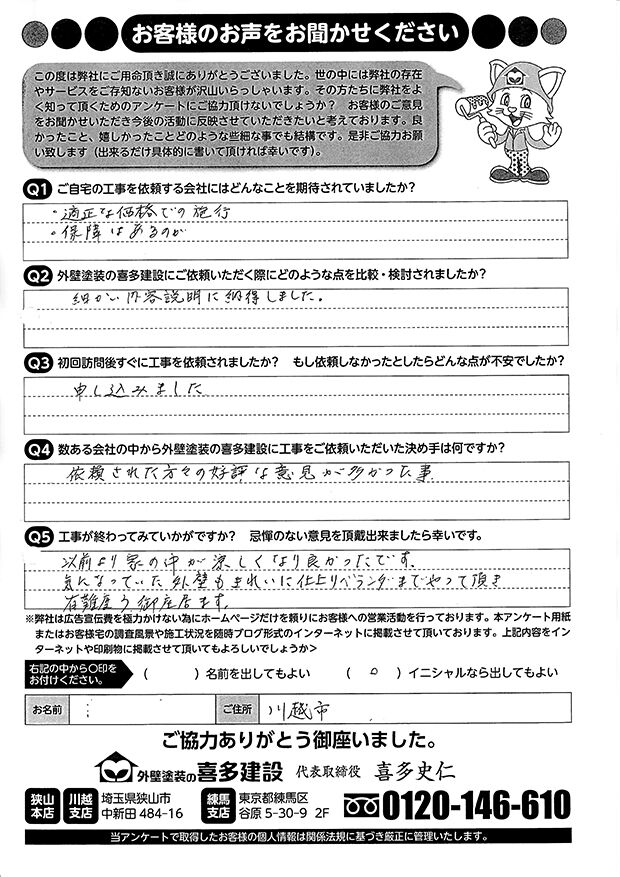 お客様のお声をお聞かせください
この度は弊社にご用命頂き誠にありがとうございました。世の中には弊社の存在
やサービスをご存知ないお客様が沢山いらっしゃいます。その方たちに弊社をよ
く知って頂くためのアンケートにご協力頂けないでしょうか？ お客様のご意見
をお聞かせいただき今後の活動に反映させていただきたいと考えております。良
かったこと、嬉しかったことどのような些細な事でも結構です。是非ご協力お願
い致します（出来るだけ具体的に書いて頂ければ幸いです）。
Q1 ご自宅の工事を依頼する会社にはどんなことを期待されていましたか？
・適正な価格での施行
・保障はあるのか
Q2 外壁塗装の喜多建設にご依頼いただく際にどのような点を比較・検討されましたか？
細かい内容説明に納得しました。
Q3 初回訪問後すぐに工事を依頼されましたか？ もし依頼しなかったとしたらどんな点が不安でしたか？
申し込みました
Q4 数ある会社の中から外壁塗装の喜多建設に工事をご依頼いただいた決め手は何ですか？
依頼された方々の好評な意見が多かった事
Q5 工事が終わってみていかがですか？ 忌憚のない意見を頂戴出来ましたら幸いです。
以前より家の中が涼しくなり良かったです。
気になっていた外壁もきれいに仕上りベランダまでやって頂き
有難度う御座居ます。
※弊社は広告宣伝費を極力かけない為にホームページだけを頼りにお客様への営業活動を行っております。本アンケート用紙
またはお客様宅の調査風景や施工状況を随時ブログ形式のインターネットに掲載させて頂いております。上記内容をイン
ターネットや印刷物に掲載させて頂いてもよろしいでしょうか＞
右記の中から〇印を
お付けください。
（ ）名前を出してもよい （ ○ ）イニシャルなら出してもよい
お名前 ご住所 川越市
ご協力ありがとう御座いました。
外壁塗装の喜多建設 代表取締役 喜多史仁
狭山本店 川越支店 埼玉県狭山市中新田 484-16 練馬支店 東京都練馬区谷原 5-30-9 2F 0120-146-610
当アンケートで取得したお客様の個人情報は関係法規に基づき厳正に管理いたします。